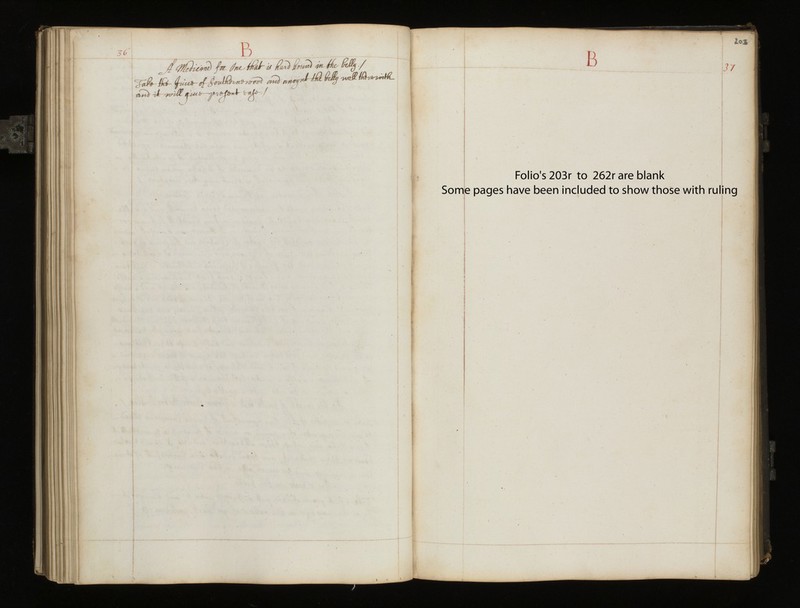 36
B
A Medicend for one that is hard bound in the belly /
Take the Juice of Southernewood and anoynt the belly well therewith
and it will giue present ease /
B
203
37
Folio's 203r to 262r are blank
Some pages have been included to show those with ruling